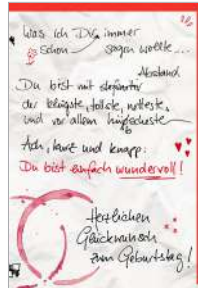 Was ich Dir immer
schon sagen wollte ...
Abstand
Du bist mit
der klügste, tollste, netteste,
und vor allem hüpfscheste
b
Ach, kurz und knapp:
Du bist einfach wundervoll!
Herzlichen
Glückwunsch
zum Geburtstag!